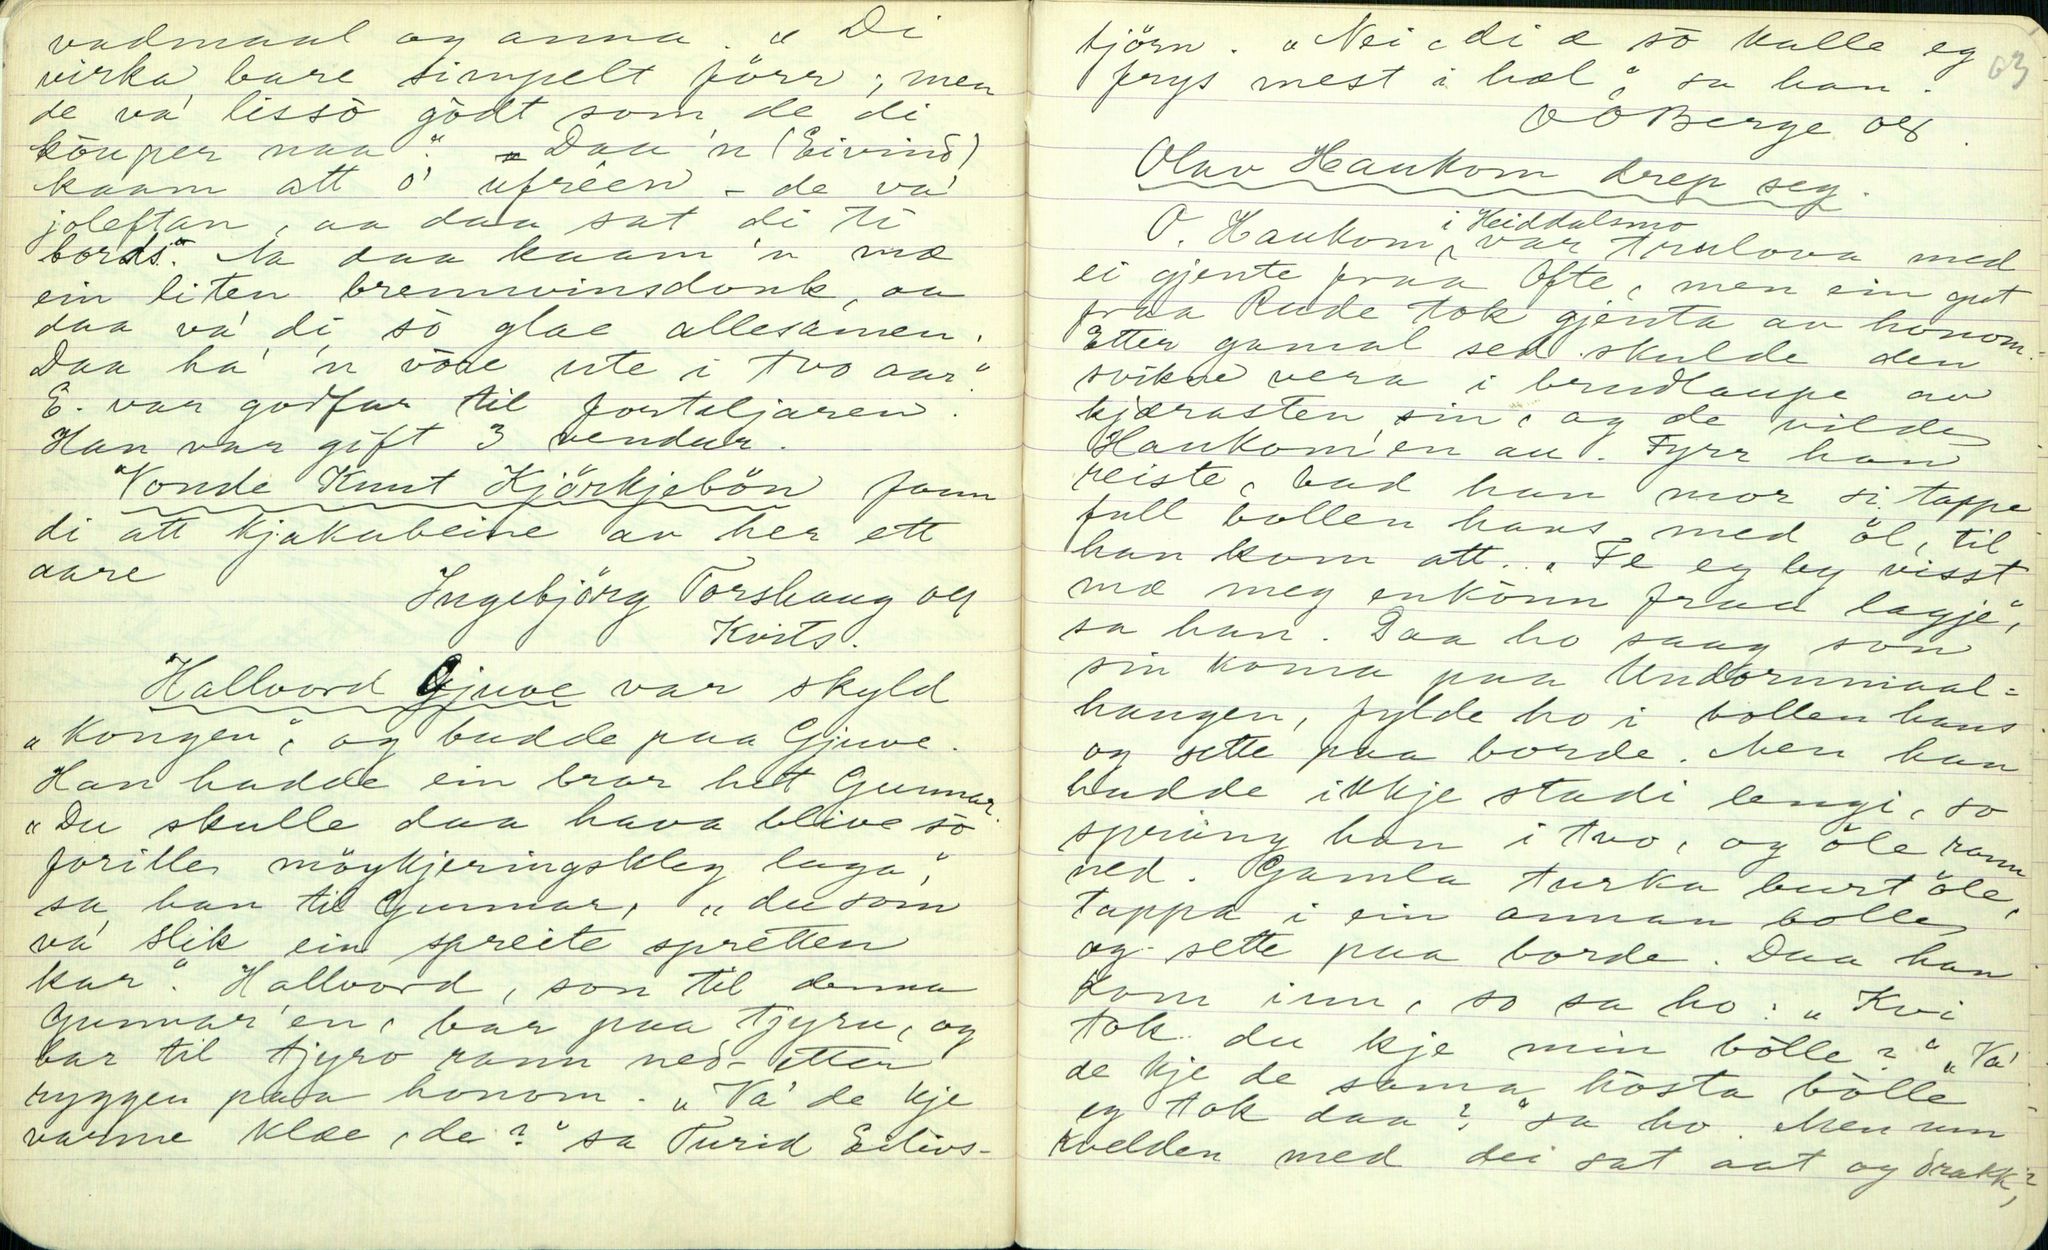 vadmaal og anna. „Di
virka bare simpelt förr; men
de va' lissö godt som de di
köuper naa". „Daa 'n (Eivind)
kaam att o' ufreen - de va'
joleftan, aa daa sat di ti
bords". Aa daa kaam 'n mæ
ein liten brennvinsdonk, aa
daa va' di sö glae allesamen.
Daa ha' 'n vöre ute i tvo aar."
E. var godfar til forteljaren.
Han var gift 3 vendur.
"Vonde Knut Kjörkjebön fann
di att kjakabeine av her ett
aare
Ingebjörg Torshaug og
Kvits.
Hallvord Gjuve var skyld
„Kongen", og budde paa Gjuve.
Han hadde ein bror het Gunnar.
„Du skulle daa hava blive sö
forille möykjeringskleg laga",
sa han til Gunnar, „du som
va' slik ein spreite spretten
kar". Hallvord, son til denna
Gunnar'en, bar paa tjyru, og
bar til tjyro rann ned etter
ryggen paa honom. „Va' de kje
varme klæe, de?" sa Turid Eilivs-
63
tjörn. „Nei, di æ sö kalle eg
frys mest i hæl", sa han.
O Ö Berge og
Olav Haukom drep seg.
i Heiddalsmo
O. Haukom var trulova med
ei gjente fraa Ofte, men ein gut
fraa Rude tok gjenta av honom.
Etter gamal sed skulde den
svikne vera i brudlaupe av
kjærasten sin, og de vilde
Haukom'en au. Fyrr han
reiste, bad han mor si tappe
full bollen hans med öl, til
han kom att. „Fe eg by visst
mæ meg enkönn fraa lagje",
sa han. Daa ho saag son
sin koma paa Undornmaal-
haugen, fylde ho i bollen hans
og sette paa borde. Men han
hadde ikkje stadi lengi, so
sprang han i tvo, og öle rann
ned. Gamla turka burt öle,
tappa i ein annan bolle
og sette paa borde. Daa han
kom inn, so sa ho: „Kvi
tok du kje min bölle?" „Va'
de kje de sama, kösta bölle
eg tok daa?" sa ho. Men um
kvelden med dei sat aat og drakk,